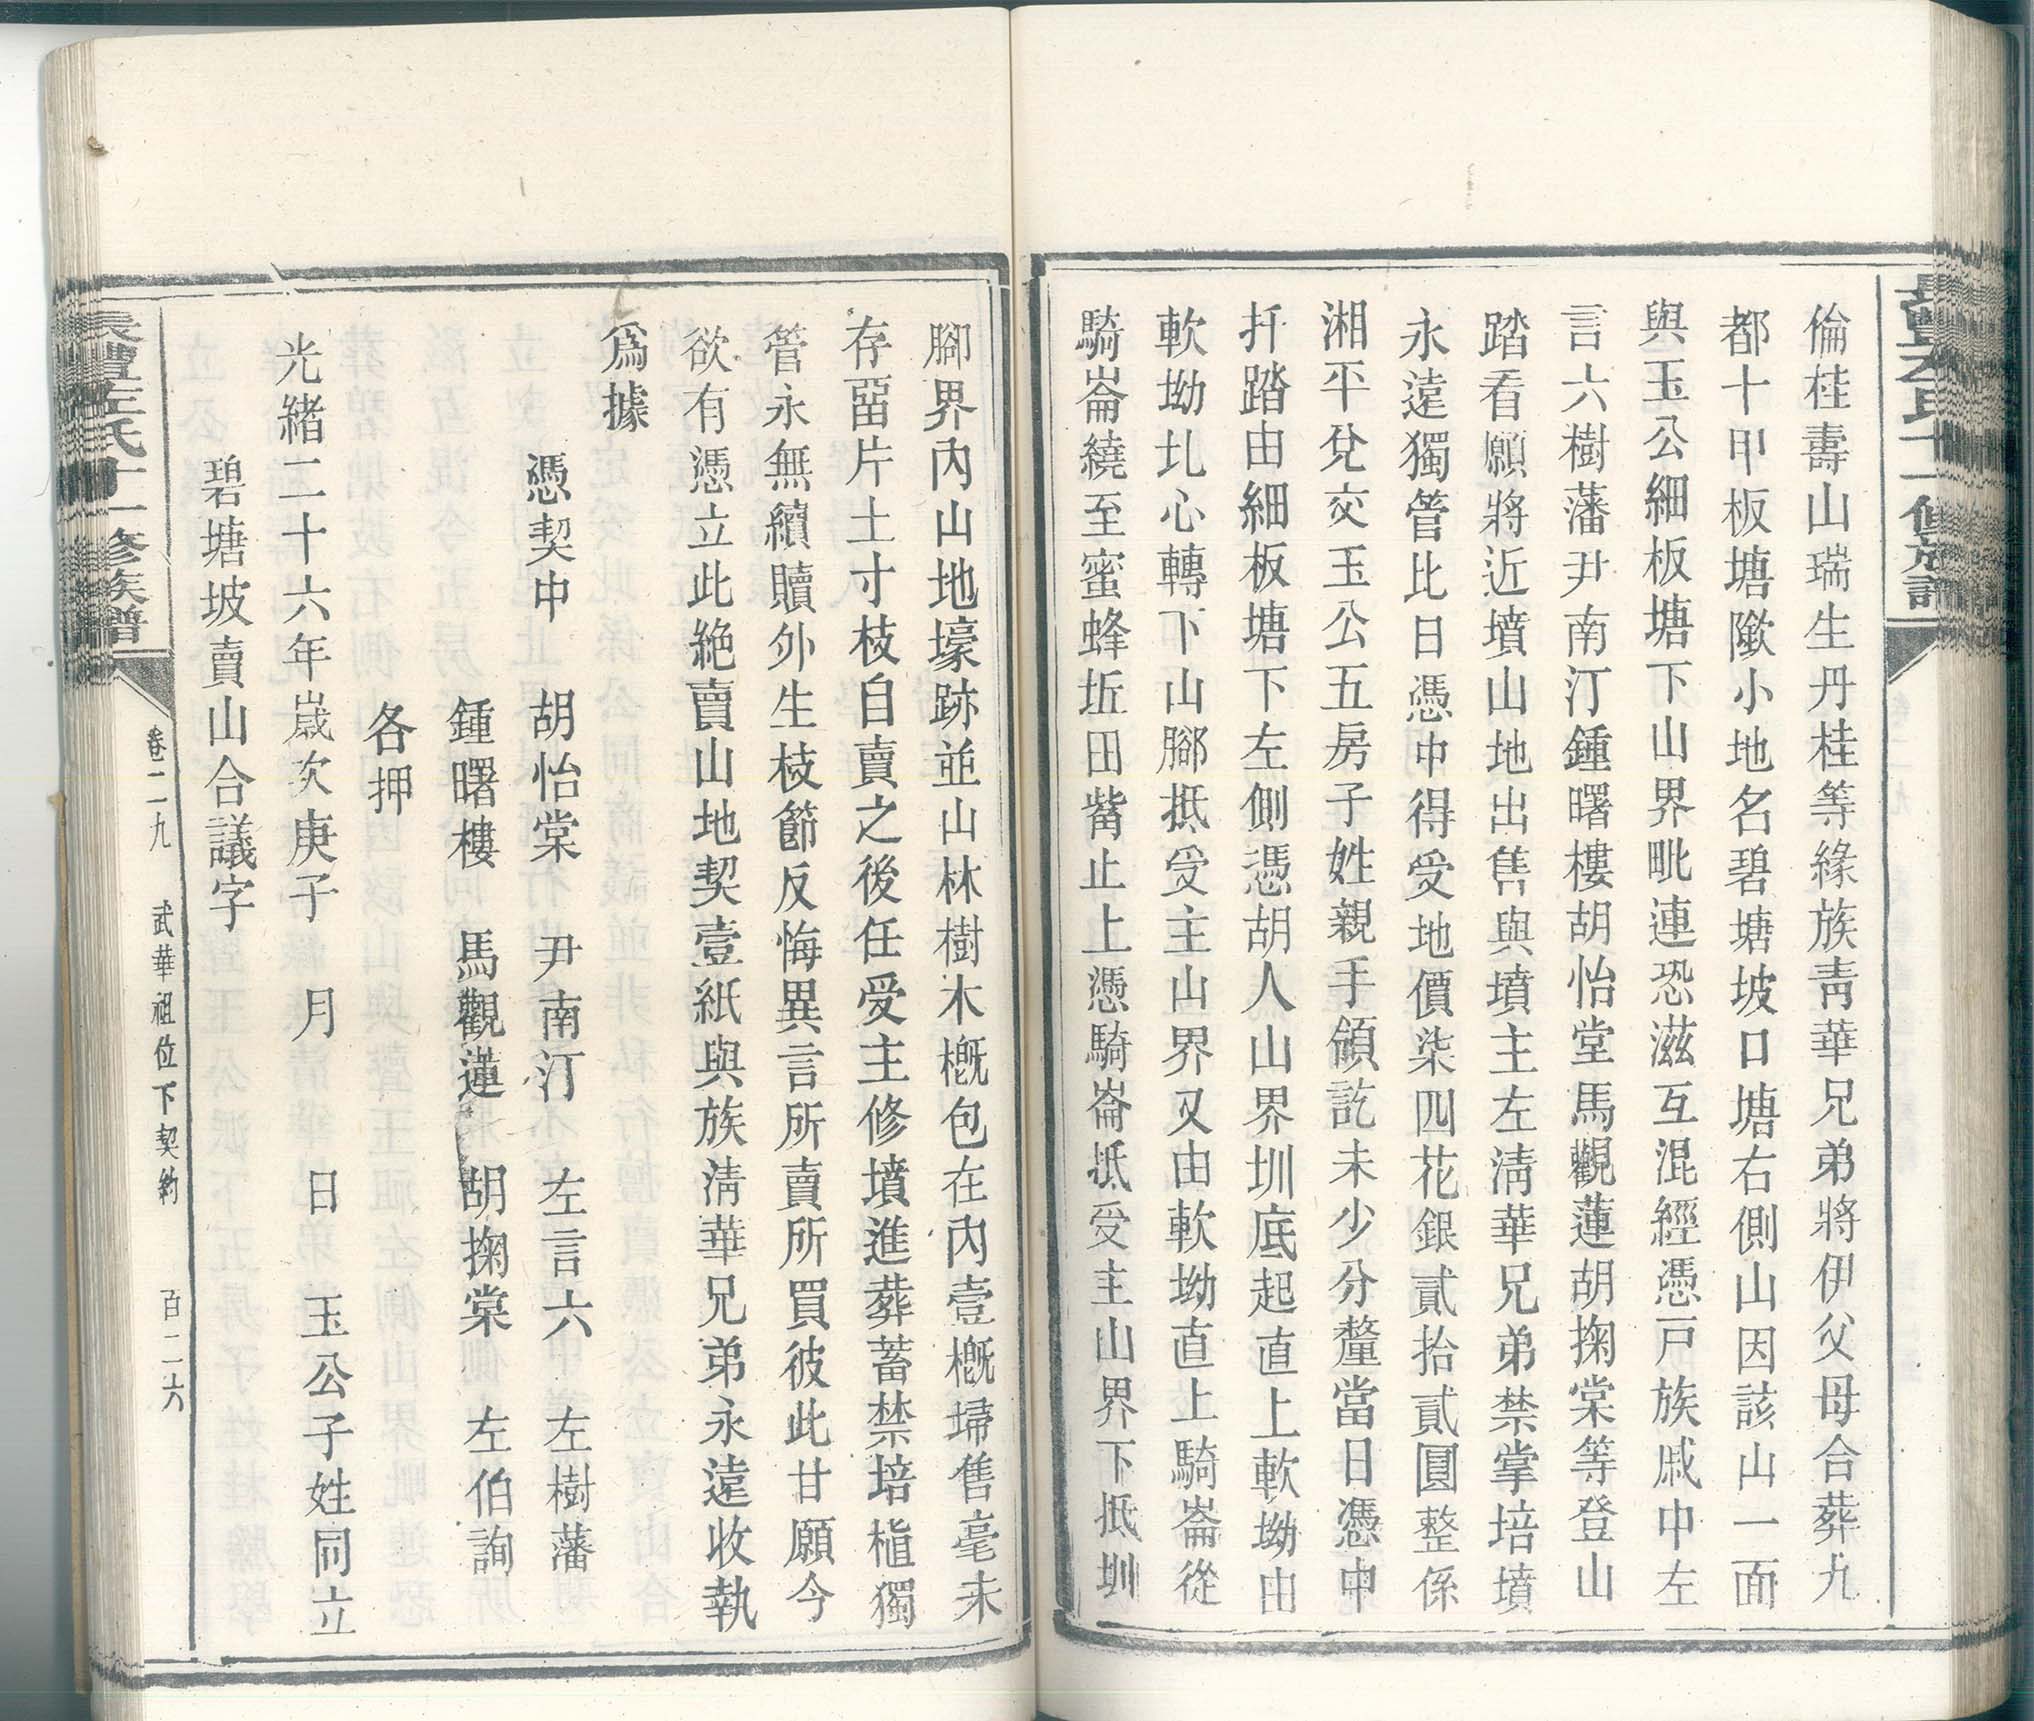 倫桂壽山瑞生丹桂等緣族靑華兄弟將伊父母合葬九
都十甲板塘隞小地名碧塘坡口塘右側山因該山一面
與玉公細板塘下山界毗連恐滋互混經憑戸族戚中左
言六樹藩尹南汀鍾曙樓胡怡堂馬觀蓮胡掬棠等登山
踏看願將近墳山地出售與墳主左淸華兄弟禁掌培墳
永遠獨管比日憑中得受地價柒四花銀貳拾貳圓整係
湘平兌交玉公五房子姓親手領訖未少分釐當日憑中
扦踏由細板塘下左側憑胡人山界圳底起直上軟坳由
軟坳圠心轉下山腳抵受主山界又由軟坳直上騎崙從
騎崙繞至蜜蜂坵田觜止上憑騎崙抵受主山界下抵圳
腳界內山地壕跡並山林樹木槪包在內壹槪埽售毫未
存畱片土寸枝自賣之後任受主修墳進葬蓄禁培植獨
管永無續贖外生枝節反悔異言所賣所買彼此甘願今
欲有憑立此絶賣山地契壹紙與族淸華兄弟永遠收執
爲據
憑契中 胡怡棠 尹南汀 左言六 左樹藩
鍾曙樓 馬觀蓮 胡掬棠 左伯詢
各押
光緒二十六年嵗次庚子 月 日 玉公子姓同立
碧塘坡賣山合議字
左氏十一修族譜
卷二九 武華祖位下契約 百二六